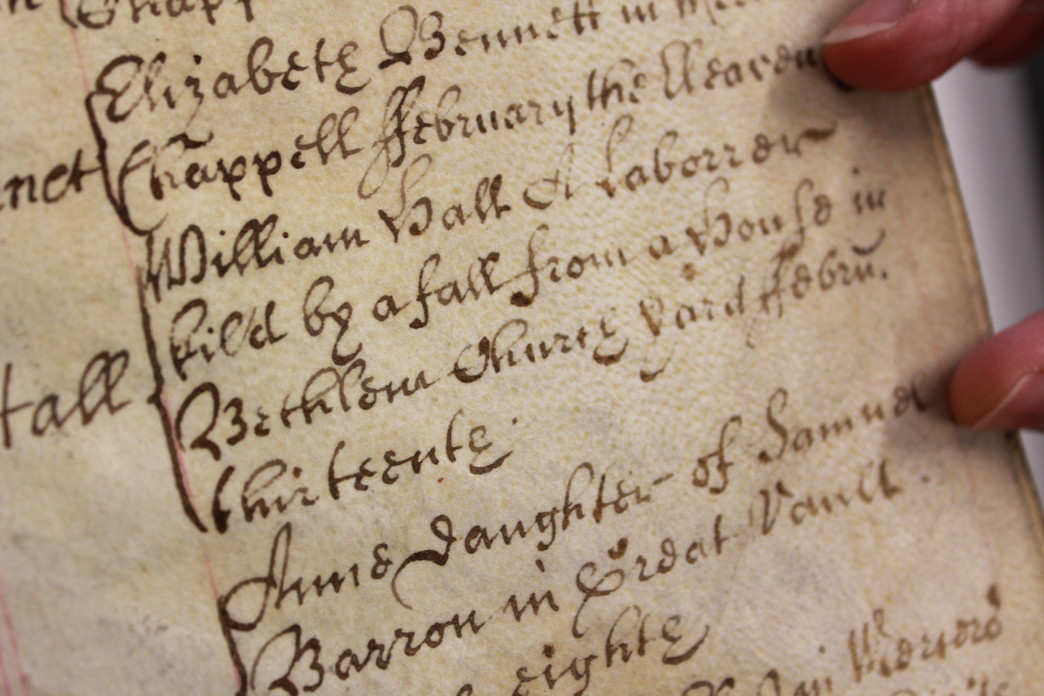 Chapp
Elizabeth Bennett in
net
Chappell ffebruary the Eleaven
William Hall A Laborrer
kil'd by a fall from a House in
Hall
Bethlem Church Yard ffebru.
thirteenth.
Anne Daughter of Samuel
Barron in Great Vault.
eighth